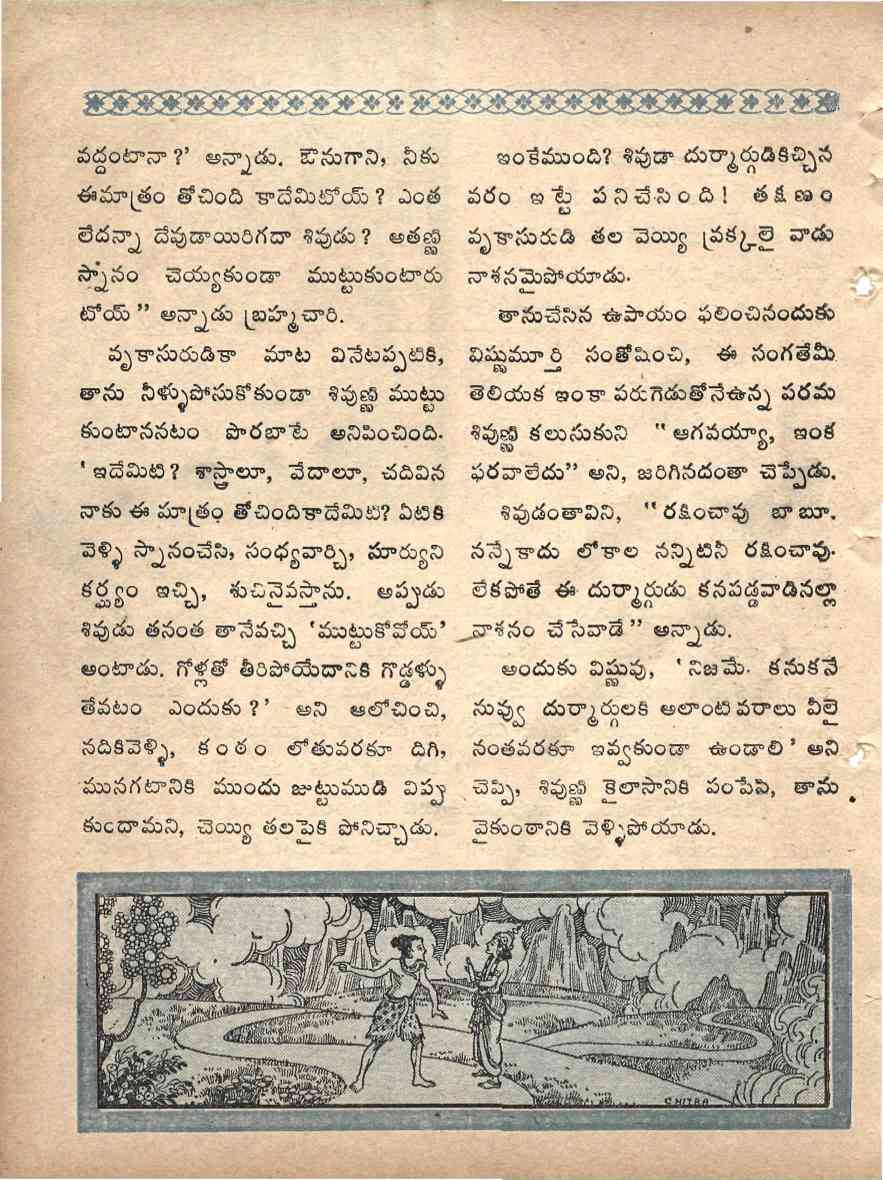 వద్దంటానా?’ అన్నాడు. ఔనుగాని, నీకు
ఈమాత్రం తోచింది కాదేమిటోయ్? ఎంత
లేదన్నా దేవుడాయిరిగదా శివుడు? అతణ్ణి
స్నానం చెయ్యకుండా ముట్టుకుంటారు
టోయ్” అన్నాడు బ్రహ్మచారి.
వృకాసురుడికా మాట వినేటప్పటికి,
తాను నీళ్ళుపోసుకోకుండా శివుణ్ణి ముట్టు
కుంటాననటం పొరబాటే అనిపించింది.
‘ఇదేమిటి? శాస్త్రాలూ, వేదాలూ, చదివిన
నాకు ఈ మాత్రం తోచిందికాదేమిటి? ఏటికి
వెళ్ళి స్నానంచేసి, సంధ్యవార్చి, సూర్యుని
కర్ఘ్యం ఇచ్చి, శుచినైవస్తాను. అప్పుడు
శివుడు తనంత తానేవచ్చి ‘ముట్టుకోవోయ్’
అంటాడు. గోళ్లతో తీరిపోయేదానికి గొడ్డళ్ళు
తేవటం ఎందుకు?’ అని ఆలోచించి,
నదికివెళ్ళి, కంఠం లోతువరకూ దిగి,
మునగటానికి ముందు జుట్టుముడి విప్పు
కుందామని, చెయ్యి తలపైకి పోనిచ్చాడు.
ఇంకేముంది? శివుడా దుర్మార్గుడికిచ్చిన
వరం ఇట్టే పనిచేసింది! తక్షణం
వృకాసురుడి తల వెయ్యి వ్రక్కలై వాడు
నాశనమైపోయాడు.
తానుచేసిన ఉపాయం ఫలించినందుకు
విష్ణుమూర్తి సంతోషించి, ఈ సంగతేమీ
తెలియక ఇంకా పరుగెడుతోనేఉన్న పరమ
శివుణ్ణి కలుసుకుని “ఆగవయ్యా, ఇంక
ఫరవాలేదు” అని, జరిగినదంతా చెప్పేడు.
శివుడంతావిని, “రక్షించావు బాబూ.
నన్నేకాదు లోకాల నన్నిటినీ రక్షించావు.
లేకపోతే ఈ దుర్మార్గుడు కనపడ్డవాడినల్లా
నాశనం చేసేవాడే” అన్నాడు.
అందుకు విష్ణువు, ‘నిజమే. కనుకనే
నువ్వు దుర్మార్గులకి అలాంటి వరాలు వీలై
నంతవరకూ ఇవ్వకుండా ఉండాలి’ అని
చెప్పి, శివుణ్ణి కైలాసానికి పంపేసి, తాను
వైకుంఠానికి వెళ్ళిపోయాడు.
CHITRA